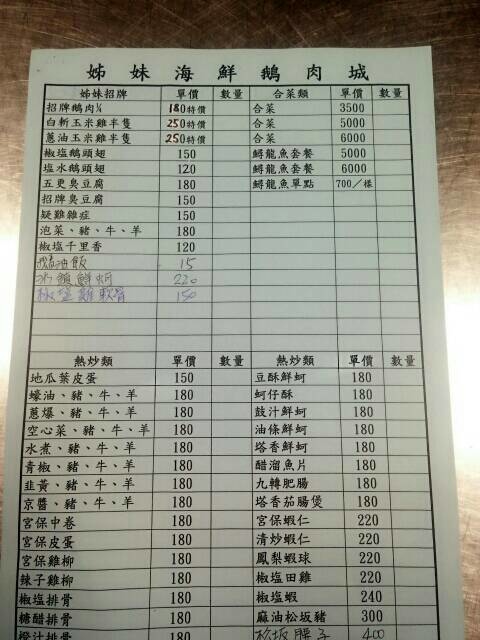 姊妹海鮮鵝肉城
姊妹招牌 單價 數量 合菜類 單價 數量
招牌鵝肉¼ 180特價 合菜 3500
白斬玉米雞半隻 250特價 合菜 5000
蔥油玉米雞半隻 250特價 合菜 6000
椒塩鵝頭翅 150 鱘龍魚套餐 5000
塩水鵝頭翅 120 鱘龍魚套餐 6000
五更臭豆腐 180 鱘龍魚單點 700/樣
招牌臭豆腐 150
疑難雜症 150
泡菜、豬、牛、羊 180
椒塩千里香 120
鵝油飯 15
冰鎮鮮蚵 220
椒塩雞軟骨 150
熱炒類 單價 數量 熱炒類 單價 數量
地瓜葉皮蛋 150 豆酥鮮蚵 180
蠔油、豬、牛、羊 180 蚵仔酥 180
蔥爆、豬、牛、羊 180 鼓汁鮮蚵 180
空心菜、豬、牛、羊 180 油條鮮蚵 180
水煮、豬、牛、羊 180 塔香鮮蚵 180
青椒、豬、牛、羊 180 醋溜魚片 180
韭黃、豬、牛、羊 180 九轉肥腸 180
京醬、豬、牛、羊 180 塔香茄腸煲 180
宮保中卷 180 宮保蝦仁 220
宮保皮蛋 180 清炒蝦仁 220
宮保雞柳 180 鳳梨蝦球 220
辣子雞柳 180 椒塩田雞 220
椒塩排骨 180 椒塩蝦 240
糖醋排骨 180 麻油松坂豬 300
橙汁排骨 180 松坂腰子 400